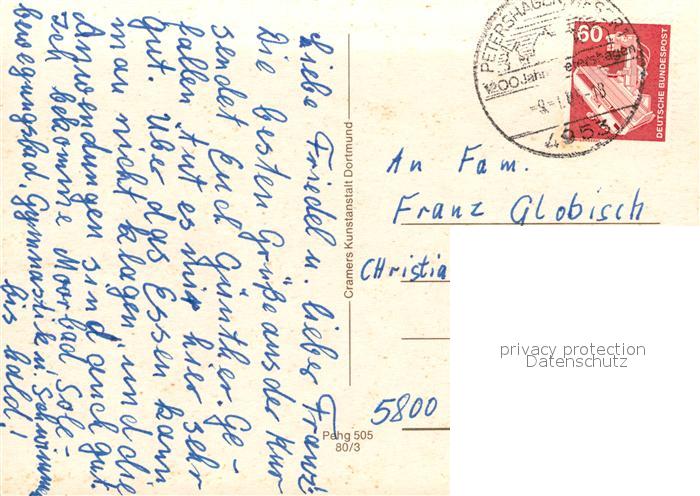 Liebe Friedel u. lieber Franz!
Die besten Grüße aus der Kur
sendet Euch Günther. Ge-
fallen tut es mir hier sehr
gut. Über das Essen kann
man nicht klagen, und die
Anwendungen sind auch gut.
Ich bekomme Moorbad, Sole-
bewegungsbad, Gymnastik u. Schwimmen
bis bald!
Cramers Kunstanstalt Dortmund
Pehg 505
80/3
PETERSHAGEN, WESER
1200 Jahre Petershagen
4953
60
DEUTSCHE BUNDESPOST
An Fam.
Franz Globisch
Christia
5800
privacy protection
Datenschutz